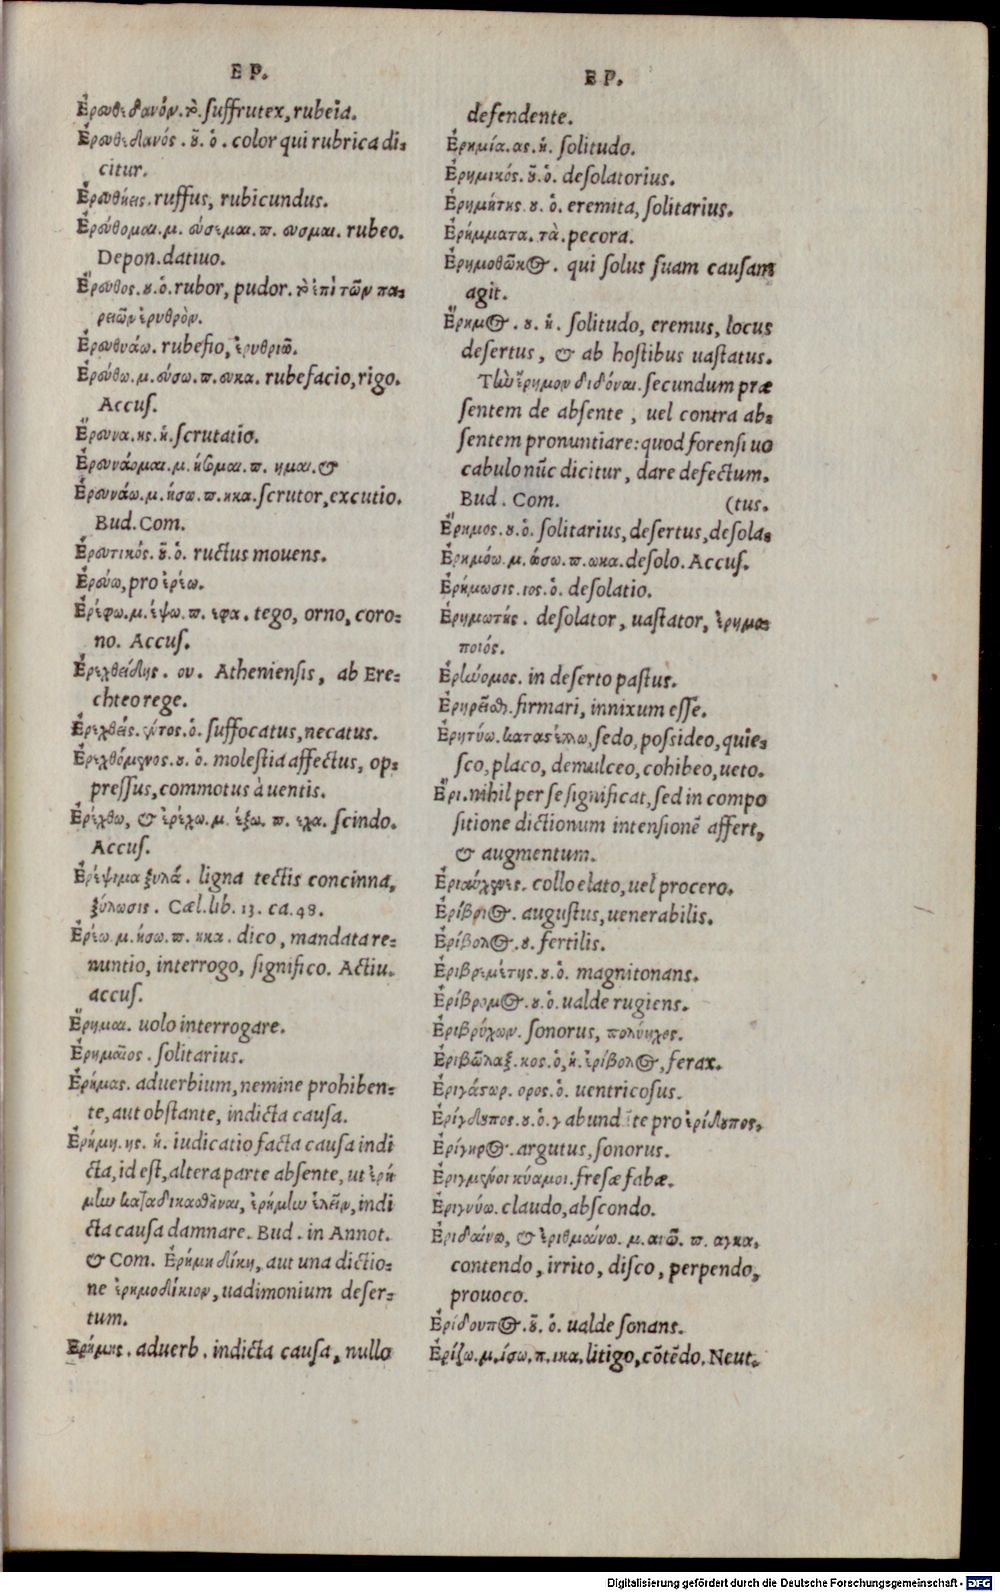 ΕΡ.
Ἐρευθεδανόν. τὸ. suffrutex, rubeia.
Ἐρευθεδανός. οῦ. ὁ. color qui rubrica di-
citur.
Ἐρευθήεις. ruffus, rubicundus.
Ἐρεύθομαι. μ. εύσεμαι. π. ευσμαι. rubeo.
Depon. datiuo.
Ἔρευθος. ου. ὁ. rubor, pudor. τὸ ἐπὶ τῶν πα-
ρειῶν ἐρυθρὸν.
Ἐρευθυάω. rubefio, ἐρυθριῶ.
Ἐρεύθω. μ. εύσω. π. ευκα. rubefacio, rigo.
Accus.
Ἔρευνα. ης. ἡ. scrutatio.
Ἐρευνάομαι. μ. ήσομαι. π. ημαι. &
Ἐρευνάω. μ. ήσω. π. ηκα. scrutor, excutio.
Bud. Com.
Ἐρευτικός. οῦ. ὁ. ructus mouens.
Ἐρεύω, pro ἐρέω.
Ἐρέφω. μ. έψω. π. εφα. tego, orno, coro-
no. Accus.
Ἐρεχθείδης. ου. Atheniensis, ab Ere-
chteo rege.
Ἐρεχθείς. έντος. ὁ. suffocatus, necatus.
Ἐρεχθόμενος. ου. ὁ. molestia affectus, op-
pressus, commotus à uentis.
Ἐρέχθω, & ἐρέχω. μ. έξω. π. εχα. scindo.
Accus.
Ἐρέψιμα ξυλά. ligna tectis concinna,
ξύλωσις. Cæl. lib. 13. ca. 48.
Ἐρέω. μ. ήσω. π. ηκα. dico, mandata re-
nuntio, interrogo, significo. Actiu.
accus.
Ἔρημαι. uolo interrogare.
Ἐρημαῖος. solitarius.
Ἐρήμας. aduerbium, nemine prohiben-
te, aut obstante, indicta causa.
Ἐρήμη. ης. ἡ. iudicatio facta causa indi
cta, id est, altera parte absente, ut ἐρή
μην καταδικασθῆναι, ἐρήμην ἑλεῖν, indi
cta causa damnare. Bud. in Annot.
& Com. Ἐρήμη δίκη, aut una dictio-
ne ἐρημοδίκιον, uadimonium deser-
tum.
Ἐρήμης. aduerb. indicta causa, nullo
ΕΡ.
defendente.
Ἐρημία. ας. ἡ. solitudo.
Ἐρημικός. οῦ. ὁ. desolatorius.
Ἐρημίτης. ου. ὁ. eremita, solitarius.
Ἐρήμματα. τὰ. pecora.
Ἐρημοθῶκος. qui solus suam causam
agit.
Ἔρημος. ου. ἡ. solitudo, eremus, locus
desertus, & ab hostibus uastatus.
Τὴν ἔρημον διδόναι. secundum præ
sentem de absente, uel contra ab-
sentem pronuntiare: quod forensi uo
cabulo nūc dicitur, dare defectum.
Bud. Com. (tus.
Ἔρημος. ου. ὁ. solitarius, desertus, desola-
Ἐρημόω. μ. ώσω. π. ωκα. desolo. Accus.
Ἐρήμωσις. ιος. ὁ. desolatio.
Ἐρημωτής. desolator, uastator, ἐρημο-
ποιός.
Ἐρηνόμος. in deserto pastus.
Ἐρηρεῖσθαι. firmari, innixum esse.
Ἐρητύω. καταστέλλω, sedo, possideo, quie-
sco, placo, demulceo, cohibeo, ueto.
Ἔρι. nihil per se significat, sed in compo
sitione dictionum intensionē affert,
& augmentum.
Ἐριαύχενες. collo elato, uel procero.
Ἐρίβριος. augustus, uenerabilis.
Ἐρίβολος. ου. fertilis.
Ἐριβρεμέτης. ου. ὁ. magnitonans.
Ἐρίβρομος. ου. ὁ. ualde rugiens.
Ἐριβρύχων. sonorus, πολύηχος.
Ἐριβῶλαξ. κος. ὁ, ἡ. ἐρίβολος, ferax.
Ἐριγάστωρ. ορος. ὁ. uentricosus.
Ἐρίγδουπος. ου. ὁ. γ abundāte pro ἐρίδουπος.
Ἐρίγηρος. argutus, sonorus.
Ἐριγμένοι κύαμοι. fresæ fabæ.
Ἐριγνύω. claudo, abscondo.
Ἐριδαίνω, & ἐριθμαίνω. μ. ανῶ. π. αγκα.
contendo, irrito, disco, perpendo,
prouoco.
Ἐρίδουπος. οῦ. ὁ. ualde sonans.
Ἐρίζω. μ. ίσω. π. ικα. litigo, cōtēdo. Neut.
Digitalisierung gefördert durch die Deutsche Forschungsgemeinschaft - DFG